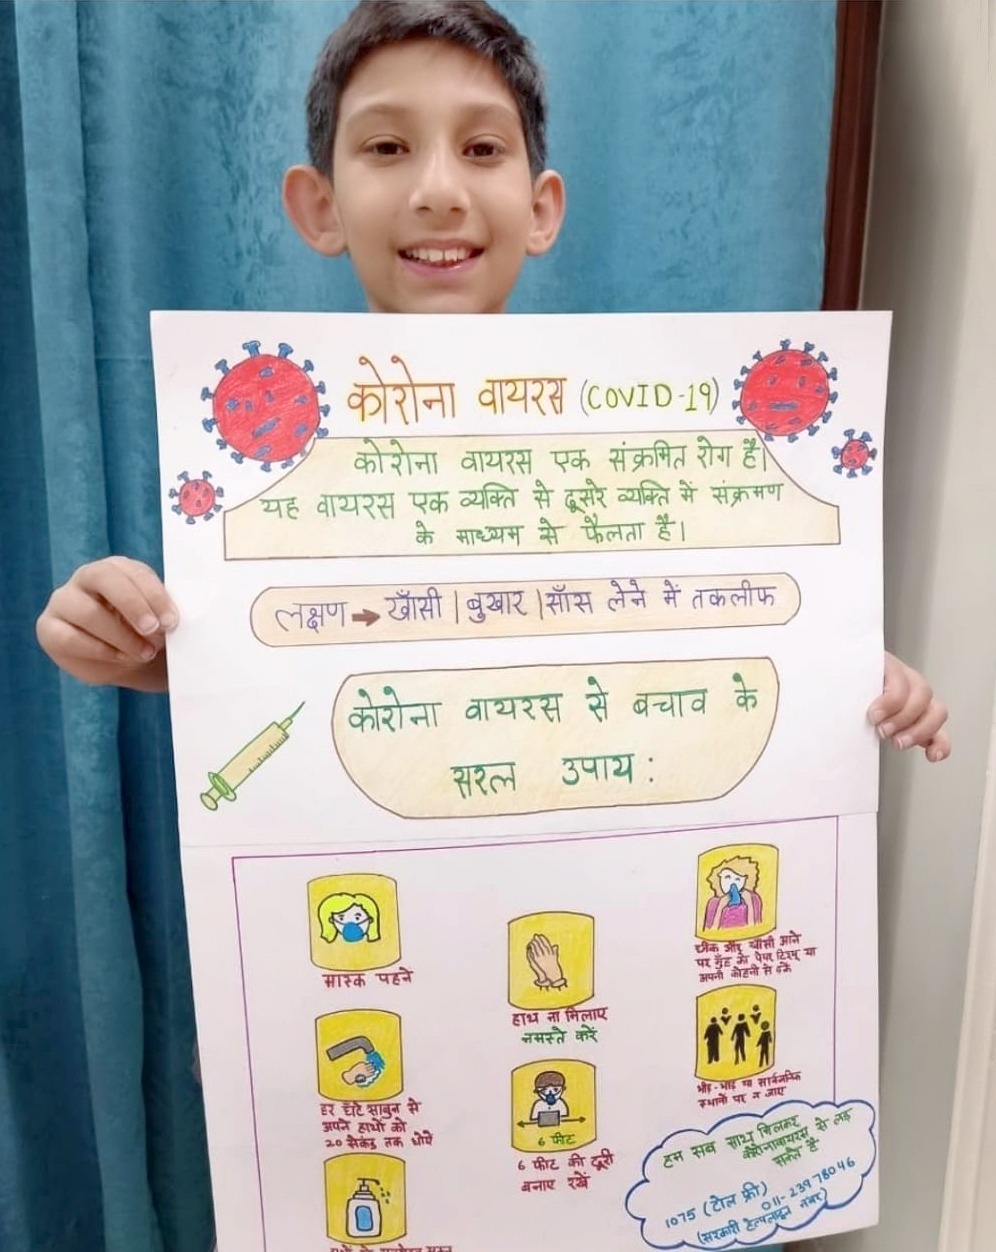 कोरोना वायरस (COVID-19)
कोरोना वायरस एक संक्रमित रोग है।
यह वायरस एक व्यक्ति से दूसरे व्यक्ति में संक्रमण
के माध्यम से फैलता है।
लक्षण → खाँसी | बुखार | साँस लेने में तकलीफ
कोरोना वायरस से बचाव के
सरल उपाय :
मास्क पहने
हर घंटे साबुन से
अपने हाथों को
20 सेकंड तक धोऐ
हाथ ना मिलाए
नमस्ते करें
6 फीट
6 फीट की दूरी
बनाए रखें
छींक और खाँसी आने
पर मुँह को पेपर टिश्यू या
अपनी कोहनी से ढकें
भीड़-भाड़ या सार्वजनिक
स्थानों पर न जाए
हम सब साथ मिलकर
कोरोनावायरस से लड़
सकते है
1075 (टोल फ्री)
011-23978046
(सरकारी हेल्पलाइन नंबर)